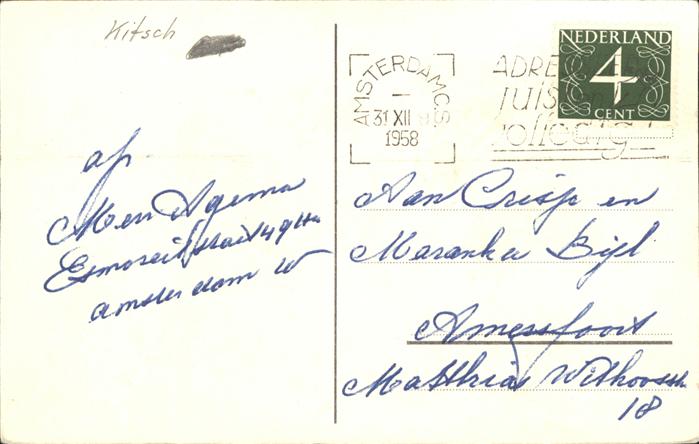 Kitsch
af
Men Agema
49
Amsterdam W
NEDERLAND
4
CENT
AMSTERDAM C.S.
31 XII
1958
ADRE
JUIS
volledig
Aan Crisje en
Maranka Bijl
Amersfoort
Matthias Withoosstr
18